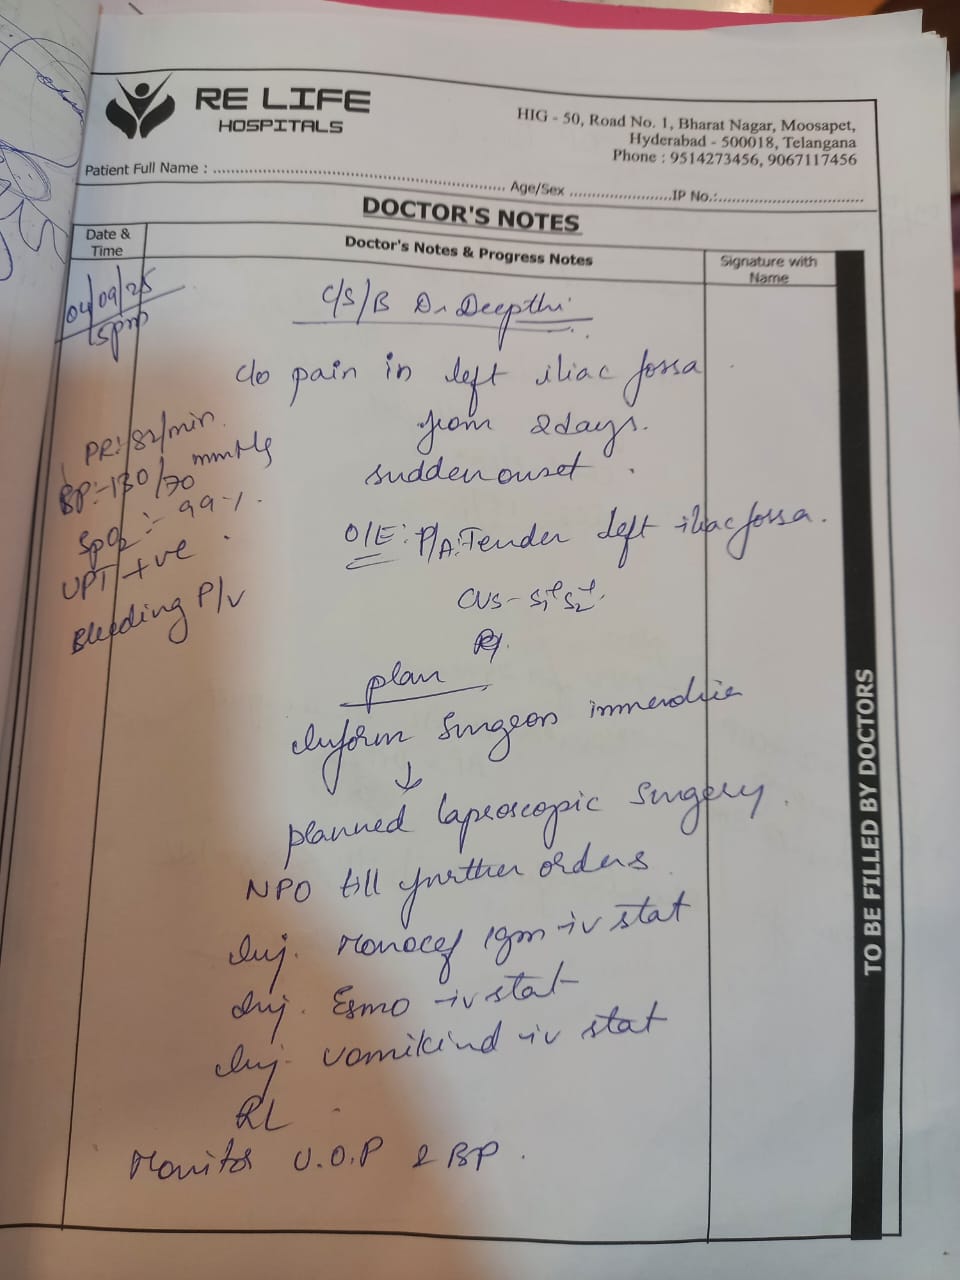 RE LIFE
HOSPITALS
HIG - 50, Road No. 1, Bharat Nagar, Moosapet,
Hyderabad - 500018, Telangana
Phone : 9514273456, 9067117456
Patient Full Name : .......... Age/Sex .......... IP No.:..........
DOCTOR'S NOTES
Date & Time
Doctor's Notes & Progress Notes
Signature with Name
04/09/25
5pm
C/S/B Dr Deepthi
c/o pain in left iliac fossa
from 2days.
sudden onset
PR:- 82/min
BP:- 130/70 mmHg
SpO2 :- 99%.
UPT +ve
Bleeding P/v
O/E: P/A: Tender left iliac fossa.
CVS - S1+ S2+
plan
Inform Surgeon
↓
planned laproscopic surgery.
NPO till further orders
Inj. Monocef 1gm iv stat
Inj. Esmo iv stat
Inj. vomikind iv stat
RL
Monitor U.O.P & BP.
TO BE FILLED BY DOCTORS